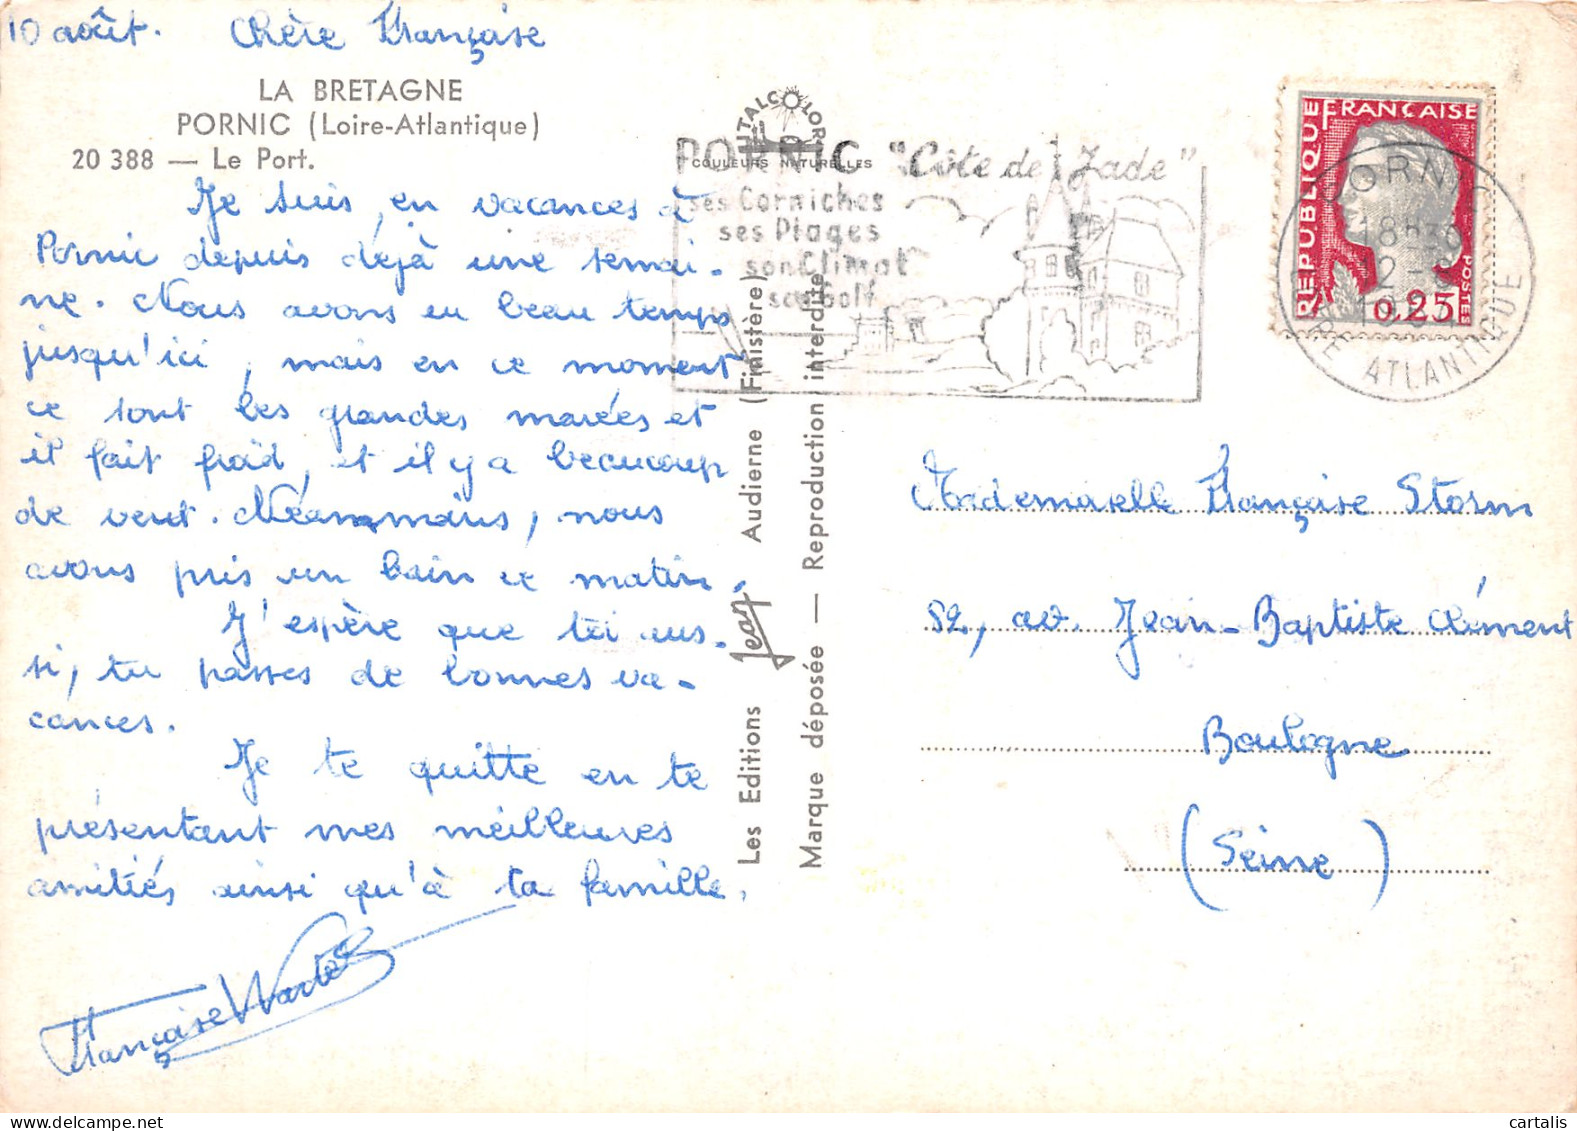 10 août. Chère Françoise
LA BRETAGNE
PORNIC (Loire-Atlantique)
20 388 — Le Port.
Je suis en vacances à
Pornic depuis déjà une semai-
ne. Nous avons eu beau temps
jusqu'ici, mais en ce moment
ce sont les grandes marées et
il fait froid, et il y a beaucoup
de vent. Néanmmoins, nous
avons pris un bain ce matin.
J'espère que toi aus-
si, tu passes de bonnes va-
cances.
Je te quitte en te
présentant mes meilleures
amitiés ainsi qu'à ta famille.
Françoise
Les Editions Jean Audierne (Finistère)
Marque déposée — Reproduction interdite
VITALCOLOR
COULEURS NATURELLES
PORNIC "Côte de Jade"
ses Corniches
ses Plages
son Climat
son Golf
REPUBLIQUE FRANÇAISE
POSTES
0,25
PORNIC
18H30
12-8
LOIRE ATLANTIQUE
Mademoiselle Françoise Storm
52, av. Jean-Baptiste Clément
Boulogne
(Seine)
cartalis